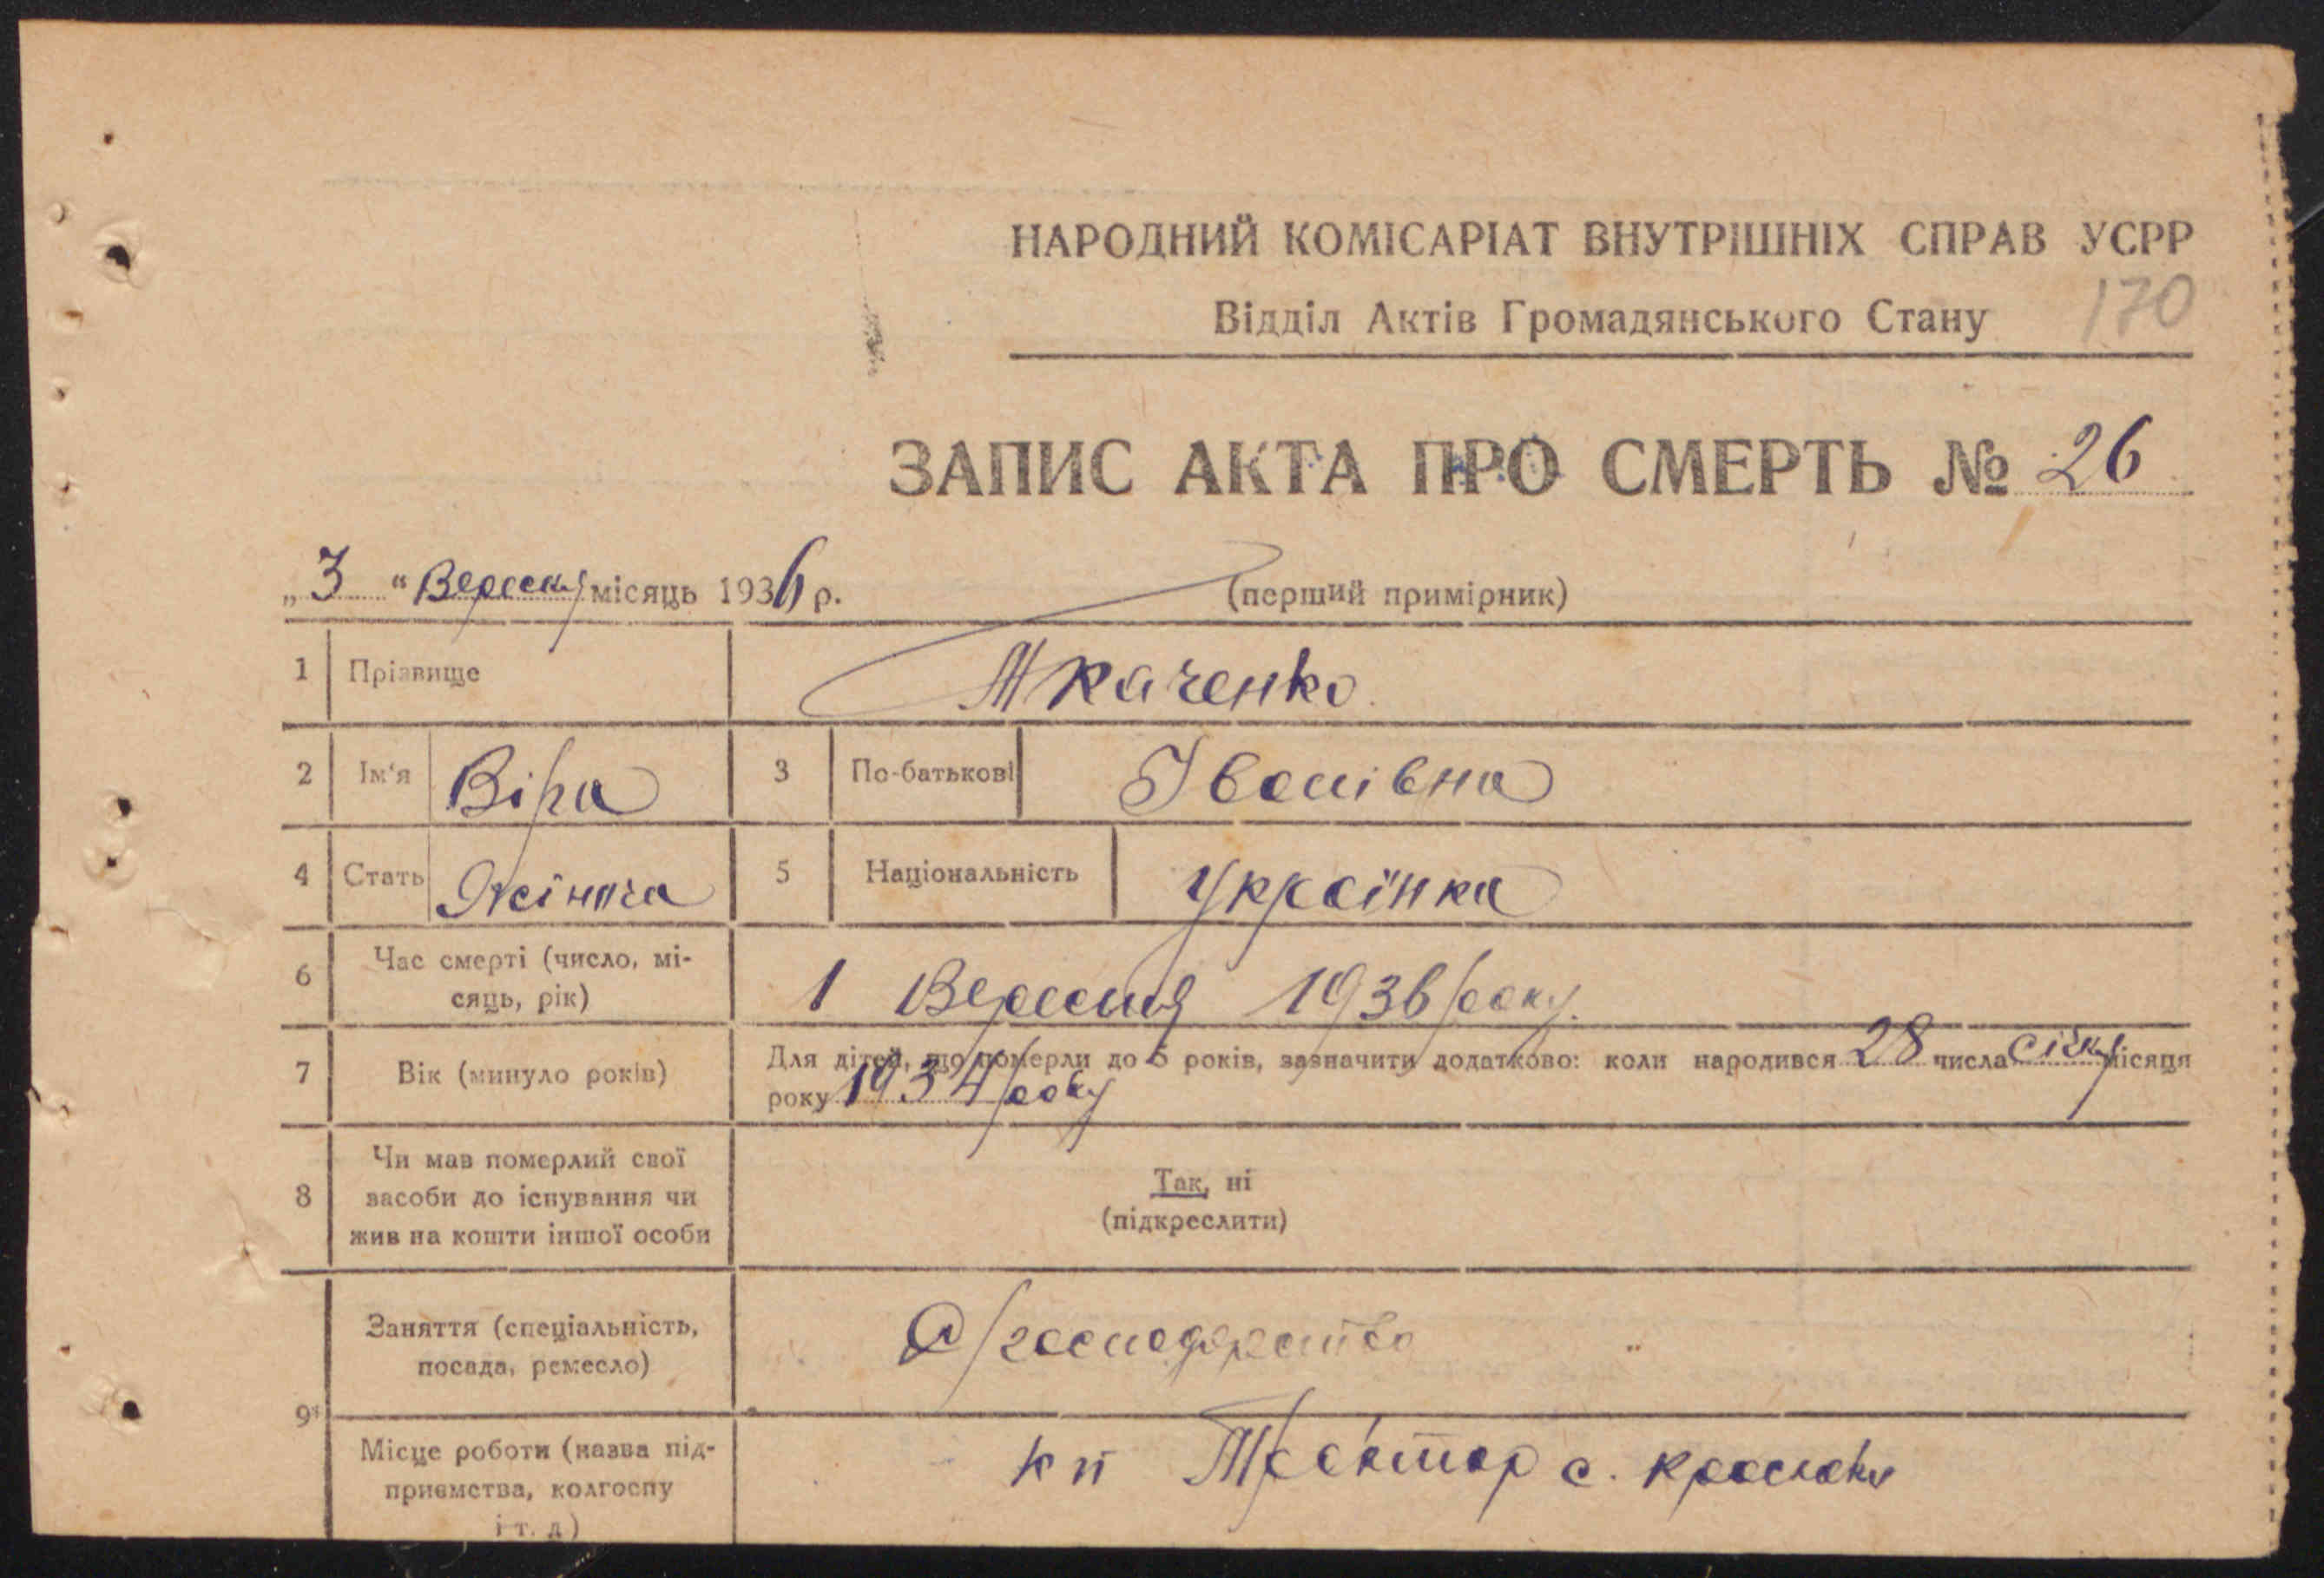 НАРОДНИЙ КОМІСАРІАТ ВНУТРІШНІХ СПРАВ УСРР
Відділ Актів Громадянського Стану 170
ЗАПИС АКТА ПРО СМЕРТЬ № 26
„3“ Вересня місяць 1936 р. (перший примірник)
1 Прізвище Ткаченко
2 Ім‘я Віра 3 По-батькові Іванівна
4 Стать Жіноча 5 Національність Українка
6 Час смерті (число, мі-
сяць, рік) 1 Вересня 1936 року.
7 Вік (минуло років) Для дітей, що померли до 5 років, зазначити додатково: коли народився 28 числа січня місяця
року 1934 року
8 Чи мав померлий свої
засоби до існування чи
жив на кошти іншої особи
Так, ні
(підкреслити)
9 Заняття (спеціальність,
посада, ремесло)
с/господарство
Місце роботи (назва під-
приємства, колгоспу
і т. д.)
Трактор с.